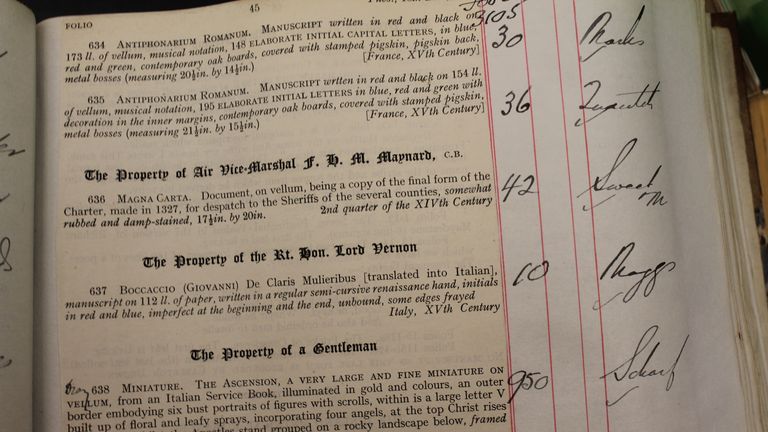 45
FOLIO
3105
634 ANTIPHONARIUM ROMANUM. MANUSCRIPT written in red and black on
173 ll. of vellum, musical notation, 148 ELABORATE INITIAL CAPITAL LETTERS, in blue,
red and green, contemporary oak boards, covered with stamped pigskin, pigskin back,
metal bosses (measuring 20½in. by 14½in.) [France, XVth Century]
30 Marks
635 ANTIPHONARIUM ROMANUM. MANUSCRIPT wrtten in red and black on 154 ll.
of vellum, musical notation, 195 ELABORATE INITIAL LETTERS in blue, red and green with
decoration in the inner margins, contemporary oak boards, covered with stamped pigskin,
metal bosses (measuring 21½in. by 15½in.) [France, XVth Century]
36
The Property of Air Vice-Marshal F. H. M. Maynard, C.B.
636 MAGNA CARTA. Document, on vellum, being a copy of the final form of the
Charter, made in 1327, for despatch to the Sheriffs of the several counties, somewhat
rubbed and damp-stained, 17½in. by 20in. 2nd quarter of the XIVth Century
42 Sweet
The Property of the Rt. Hon. Lord Vernon
637 BOCCACCIO (GIOVANNI) De Claris Mulieribus [translated into Italian],
manuscript on 112 ll. of paper, written in a regular semi-cursive renaissance hand, initials
in red and blue, imperfect at the beginning and the end, unbound, some edges frayed
Italy, XVth Century
10 Maggs
The Property of a Gentleman
638 MINIATURE. THE ASCENSION, A VERY LARGE AND FINE MINIATURE ON
VELLUM, from an Italian Service Book, illuminated in gold and colours, an outer
border embodying six bust portraits of figures with scrolls, within is a large letter V
built up of floral and leafy sprays, incorporating four angels, at the top Christ rises
Apostles stand grouped on a rocky landscape below, framed
950 Scharf